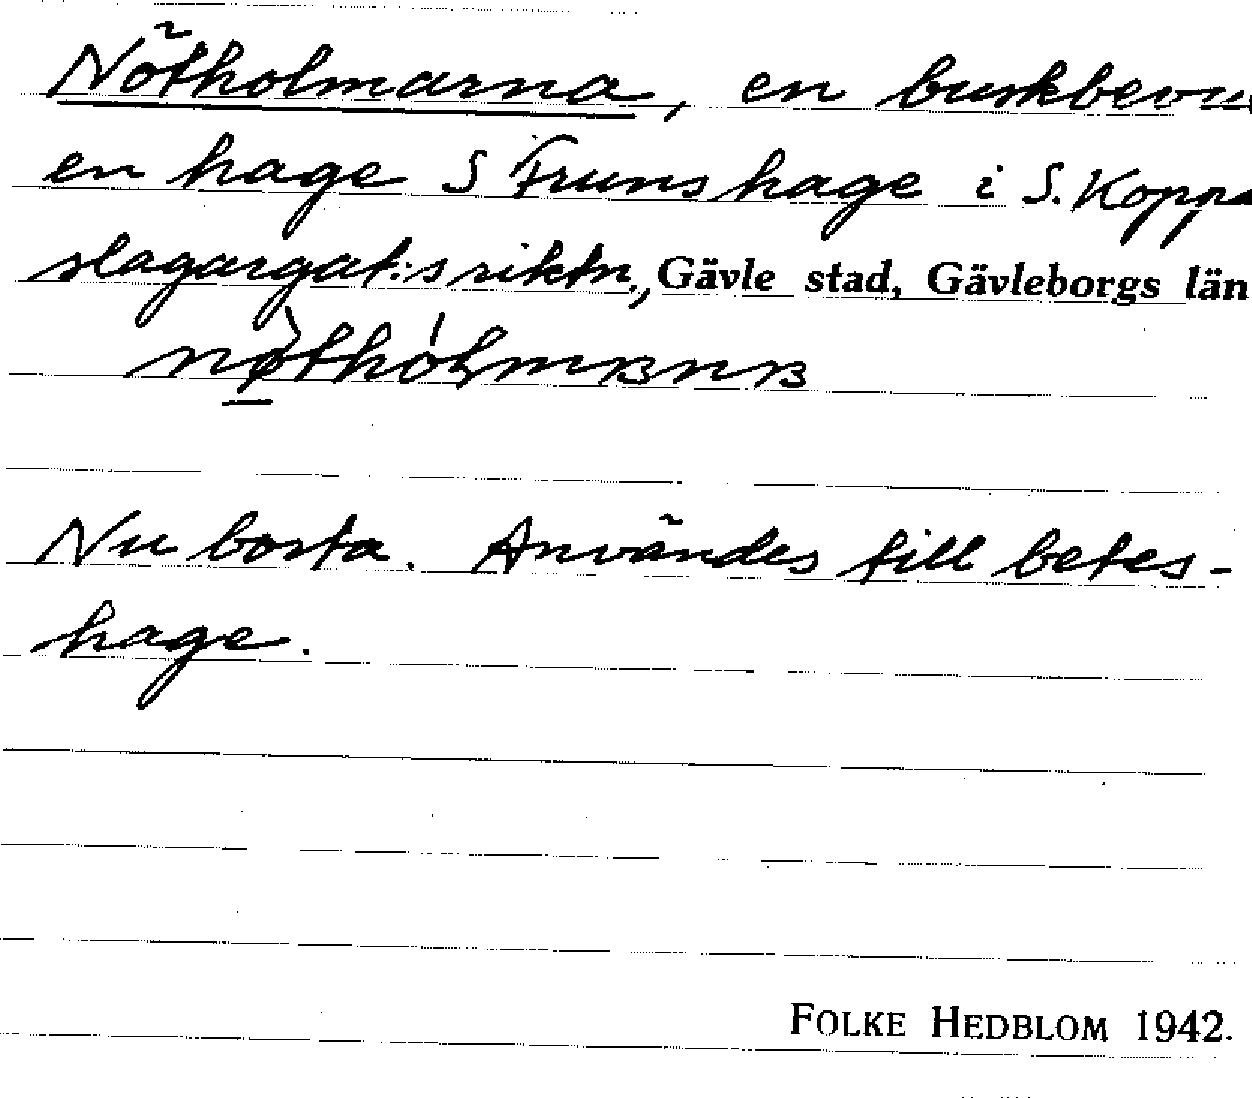 Nötholmarna, en buskbevu
en hage S Fruns hage i S. Koppa
slagargat:s riktn., Gävle stad, Gävleborgs län

Nu borta. Användes till betes-
hage.
FOLKE HEDBLOM 1942.